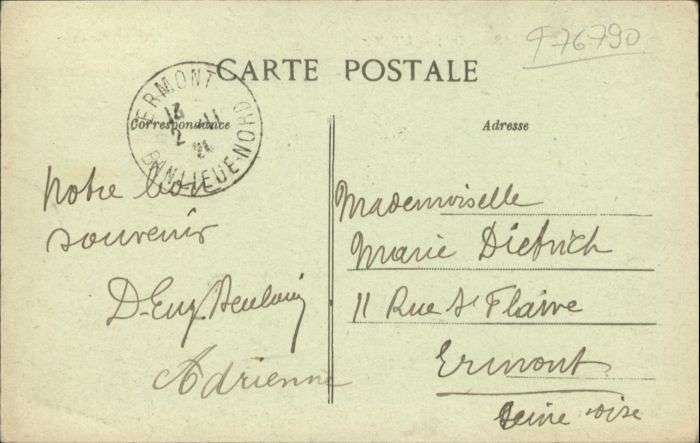 976790
CARTE POSTALE
ERMONT
13 - 11
2 21
BANLIEUE-NORD
Correspondance
Adresse
Notre bon
souvenir
Adrienne
Mademoiselle
Marie Dietrich
11 Rue St Flaive
Ermont
Seine oise